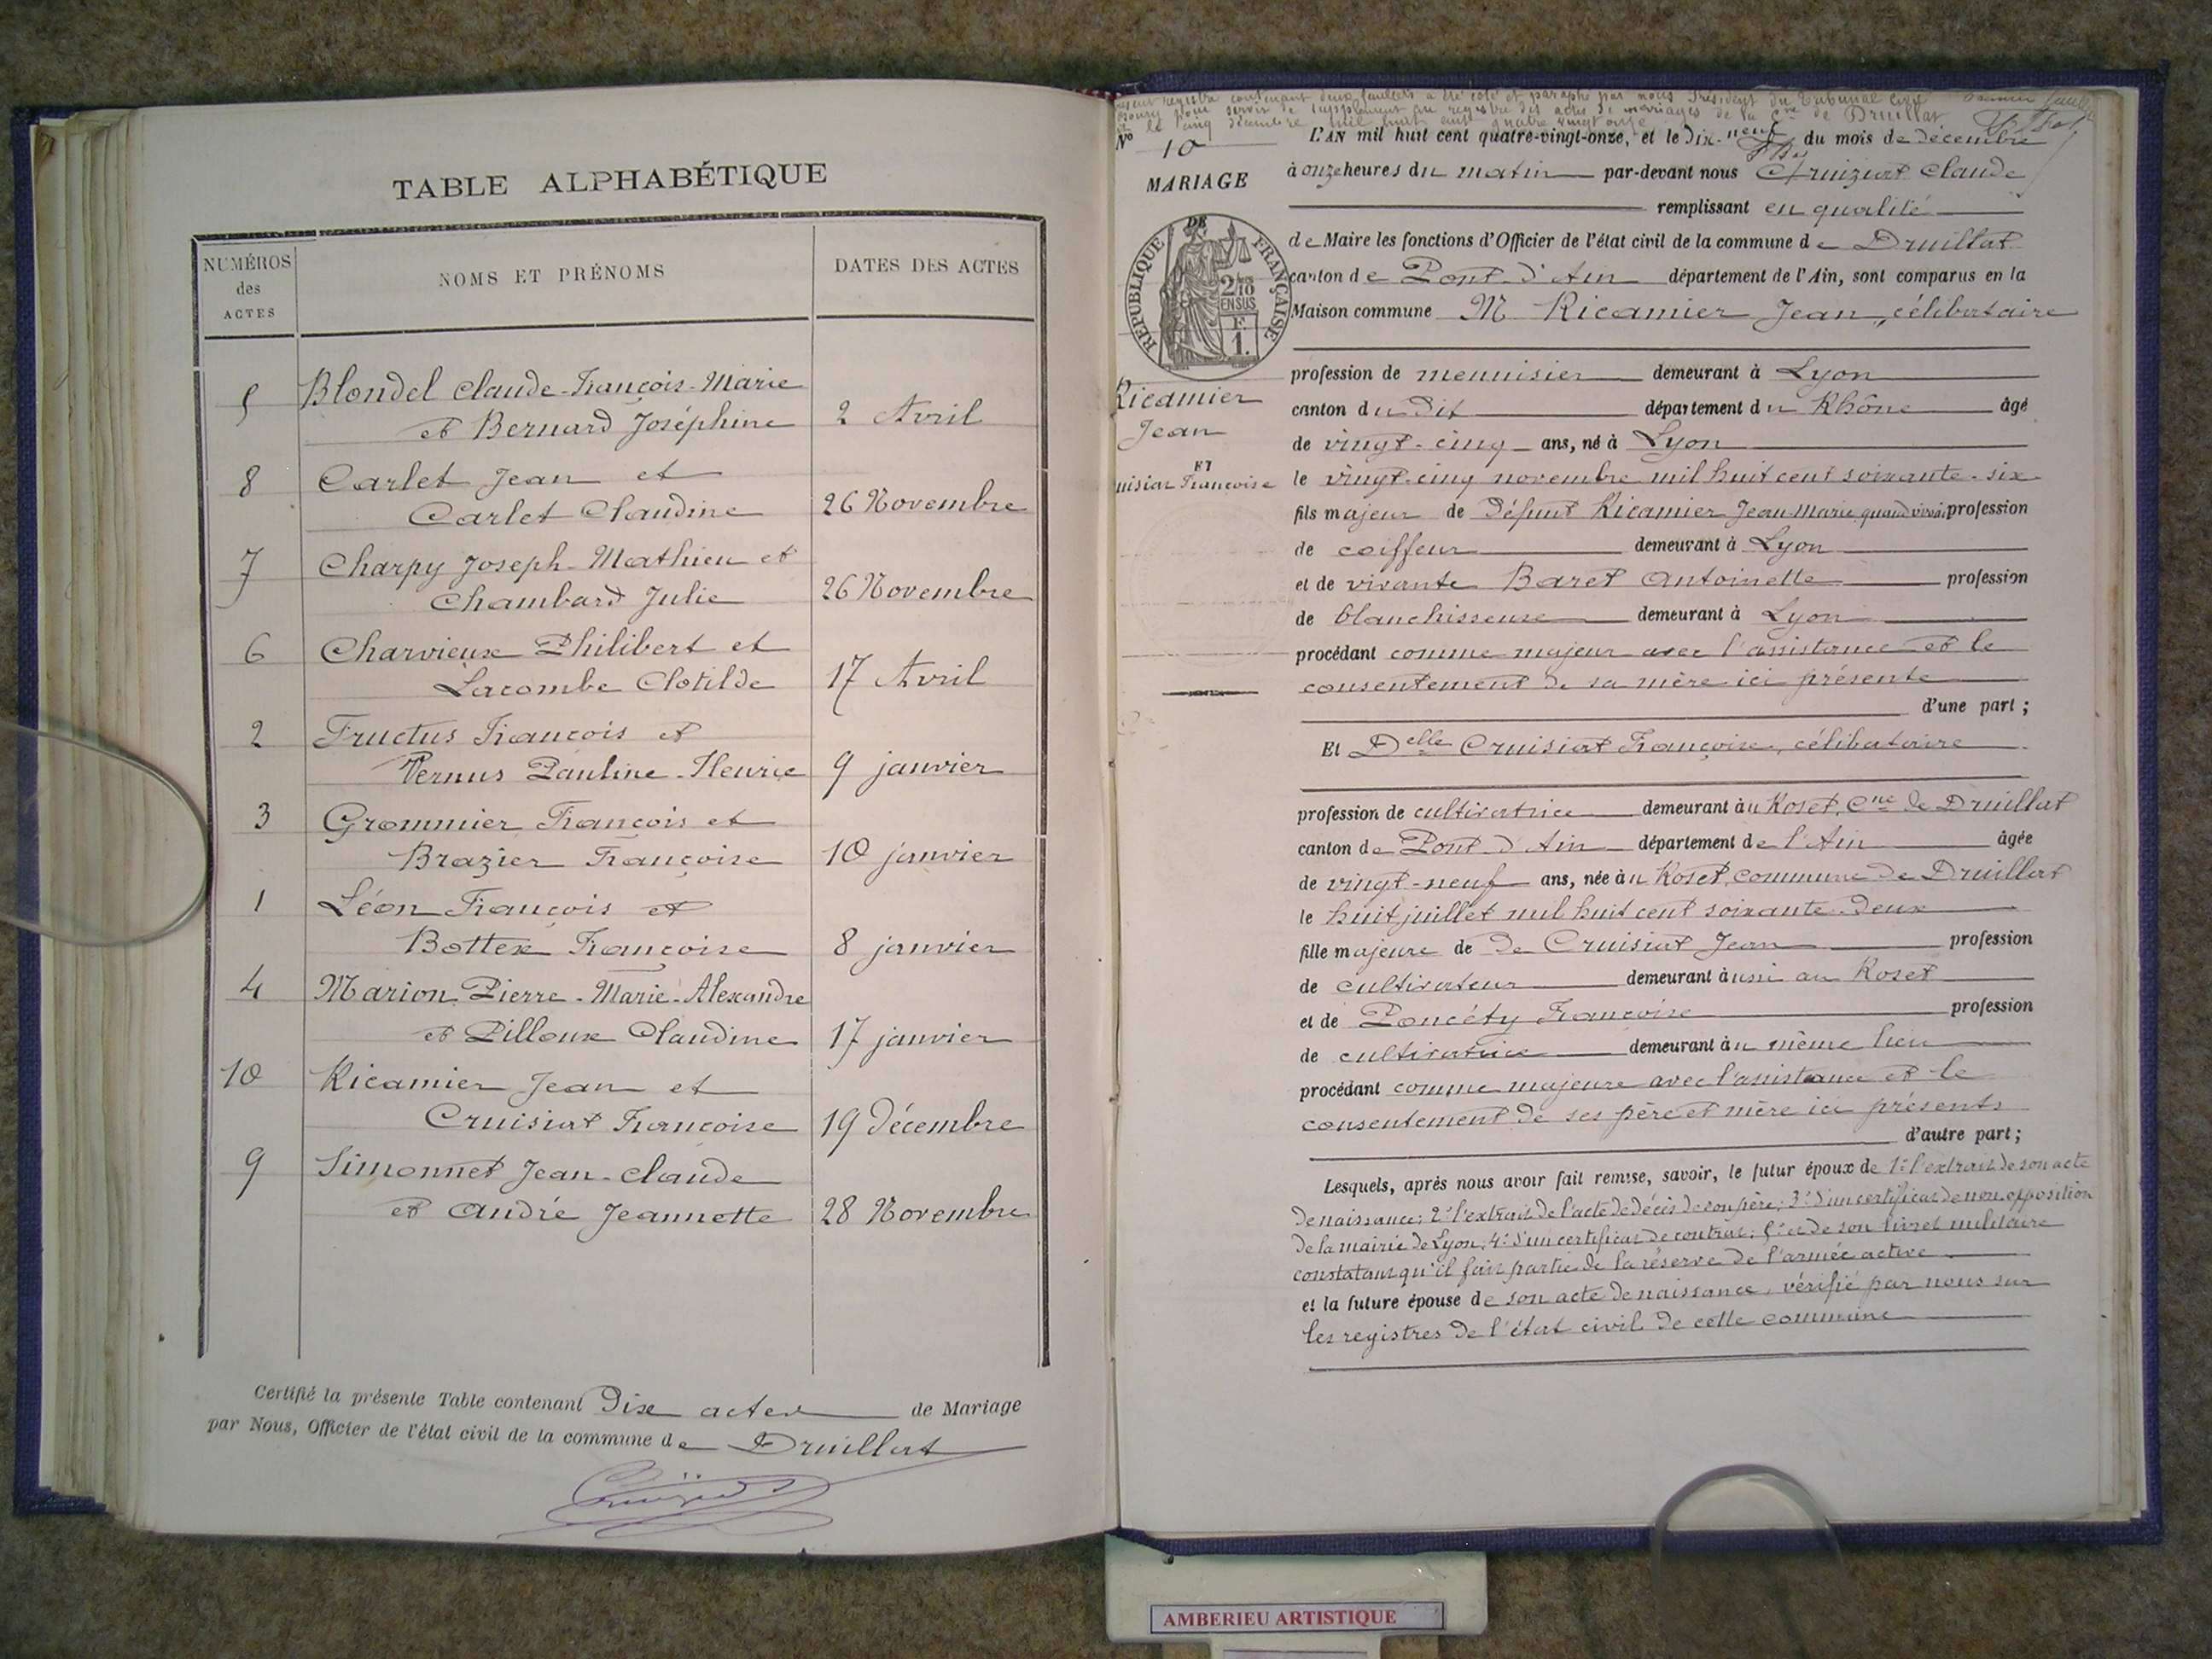 TABLE ALPHABÉTIQUE
NUMÉROS des ACTES
NOMS ET PRÉNOMS
DATES DES ACTES
5 Blondel Claude-François-Marie
et Bernard Joséphine 2 Avril
8 Carlet Jean et
Carlet Claudine 26 Novembre
7 Charpy Joseph-Mathieu et
Chambard Julie 26 Novembre
6 Charvieux Philibert et
Lacombe Clotilde 17 Avril
2 Fructus François et
Vernus Pauline-Fleurie 9 janvier
3 Grommier François et
Brazier Françoise 10 janvier
1 Léon François et
Bottex Françoise 8 janvier
4 Marion Pierre-Marie-Alexandre
et Pilloux Claudine 17 janvier
10 Ricamier Jean et
Cruisiat Françoise 19 Décembre
9 Simonnet Jean-Claude
et André Jeannette 28 Novembre
Certifié la présente Table contenant Dix actes de Mariage
par Nous, Officier de l'état civil de la commune de Druillat
registre contenant deux feuillets a été coté et paraphé par nous Président du Tribunal civil
pour servir de supplément au registre des actes de mariages de la Cne de Druillat
le cinq décembre mil huit cent quatre vingt onze
No 10
MARIAGE
RÉPUBLIQUE FRANÇAISE
2/10 EN SUS
F. 1.
Ricamier
Jean
ET
uisiat Françoise
L'AN mil huit cent quatre-vingt-onze, et le Dix-neuf du mois de décembre
à onze heures du matin par-devant nous Cruiziat Claude
remplissant en qualité
de Maire les fonctions d'Officier de l'état civil de la commune de Druillat
canton de Pont-d'Ain département de l'Ain, sont comparus en la
Maison commune M Ricamier Jean, célibataire
profession de menuisier demeurant à Lyon
canton du Dit département du Rhône âgé
de vingt-cinq ans, né à Lyon
le vingt-cinq novembre mil huit cent soixante-six
fils majeur de Défunt Ricamier Jean Marie quand vivait profession
de coiffeur demeurant à Lyon
et de vivante Baret Antoinette profession
de blanchisseuse demeurant à Lyon
procédant comme majeur avec l'assistance et le
consentement de sa mère ici présente
d'une part;
Et Delle Cruisiat Françoise, célibataire
profession de cultivatrice demeurant àu Roset, Cne de Druillat
canton de Pont d'Ain département de l'Ain âgée
de vingt-neuf ans, née àu Roset, commune de Druillat
le huit juillet mil huit cent soixante-deux
fille majeure de de Cruisiat Jean profession
de cultivateur demeurant aussi au Roset
et de Poncéty Françoise profession
de cultivatrice demeurant àu même lieu
procédant comme majeure avec l'assistance et le
consentement de ses père et mère ici présents
d'autre part;
Lesquels, après nous avoir fait remise, savoir, le futur époux de 1° l'extrait de son acte
de naissance; 2° l'extrait de l'acte de décès de son père; 3° d'un certificat de non opposition
de la mairie de Lyon; 4° d'un certificat de contrat; 5° et de son livret militaire
constatant qu'il fait partie de la réserve de l'armée active
et la future épouse de son acte de naissance, vérifié par nous sur
les registres de l'état civil de cette commune
AMBERIEU ARTISTIQUE